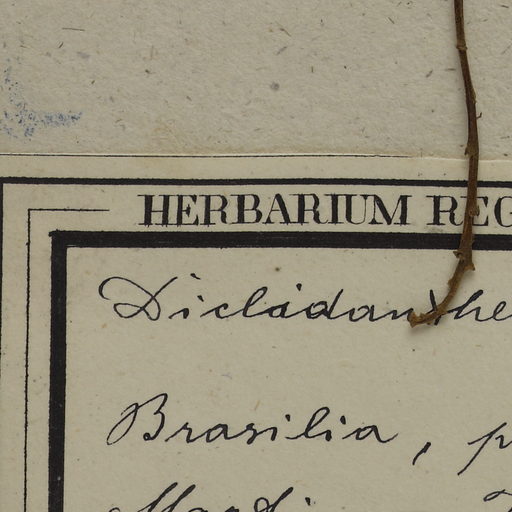 HERBARIUM REG
Diclidanthe
Brasilia, p